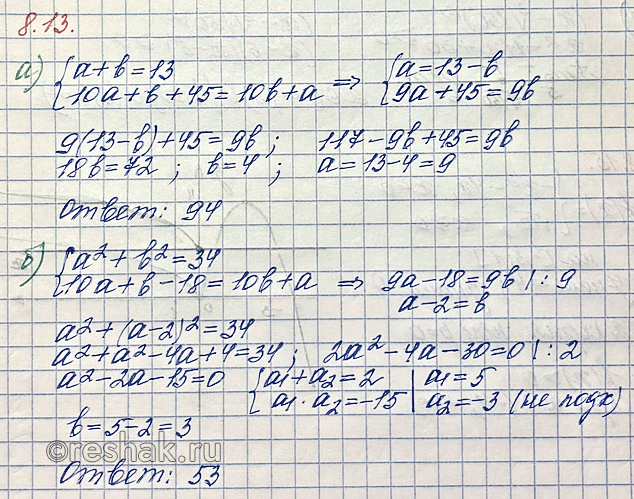 8.13.
а) { a+b=13
10a+b+45=10b+a => { a=13-b
9a+45=9b
9(13-b)+45=9b; 117-9b+45=9b
18b=72; b=4; a=13-4=9
Ответ: 94
б) { a²+b²=34
10a+b-18=10b+a => 9a-18=9b |:9
a-2=b
a²+(a-2)²=34
a²+a²-4a+4=34; 2a²-4a-30=0 |:2
a²-2a-15=0 { a₁+a₂=2 | a₁=5
a₁·a₂=-15 | a₂=-3 (не подх)
b=5-2=3
©reshak.ru
Ответ: 53